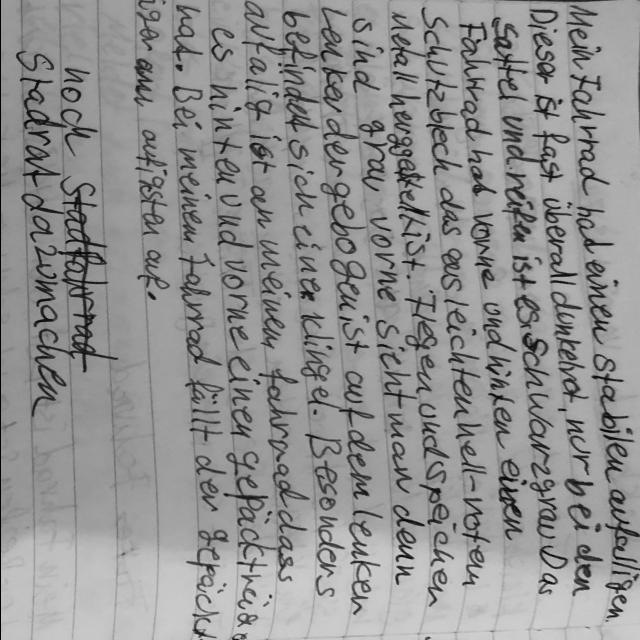 Mein Fahrrad hat einen stabilen aufälligen
Dieser ist fast überall dunkelrot, nur bei den
Sattel und reifen ist es Schwarzgrau. Das
Fahrrad hat vorne und hinten einen
Schutzblech das aus leichten hell-roten
Metall hergestellt ist. Fegen und speichen
sind grau vorne sieht man denn
Lenker der gebogen ist auf dem lenken
befindet sich einen Klingel. Besonders
aufälig ist an meinen fahrrad das
es hinten und vorne einen gepäckträg
hat. Bei meinen Fahrrad fällt der gepäckt
äger am aufigsten auf.
noch Stadtfahrrad
Stadrat dazumachen